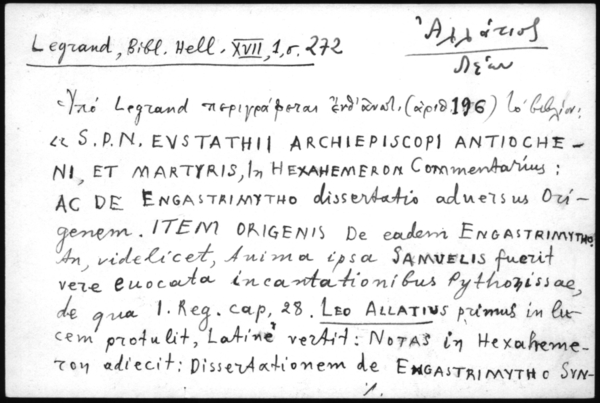 Ἀλλάτιος
Λέων
Legrand, Bibl. Hell. XVII, 1, σ. 272
Ὑπό Legrand περιγράφεται ἐνθ' ἀνωτ. (ἀριθ. 196) τό βιβλίον:
« S.P.N. EVSTATHII ARCHIEPISCOPI ANTIOCHE-
NI, ET MARTYRIS, In HEXAHEMERON Commentarius:
AC DE ENGASTRIMYTHO dissertatio aduersus Ori-
genem. ITEM ORIGENIS De eadem ENGASTRIMYTHO.
An, videlicet, Anima ipsa SAMVELIS fuerit
vere euocata incantationibus Pythonissae,
de qua 1. Reg. cap, 28. LEO ALLATIVS primus in lu-
cem protulit, Latinè vertit: NOTAS in Hexaheme-
ron adiecit: Dissertationem de ENGASTRIMYTHO SYN-